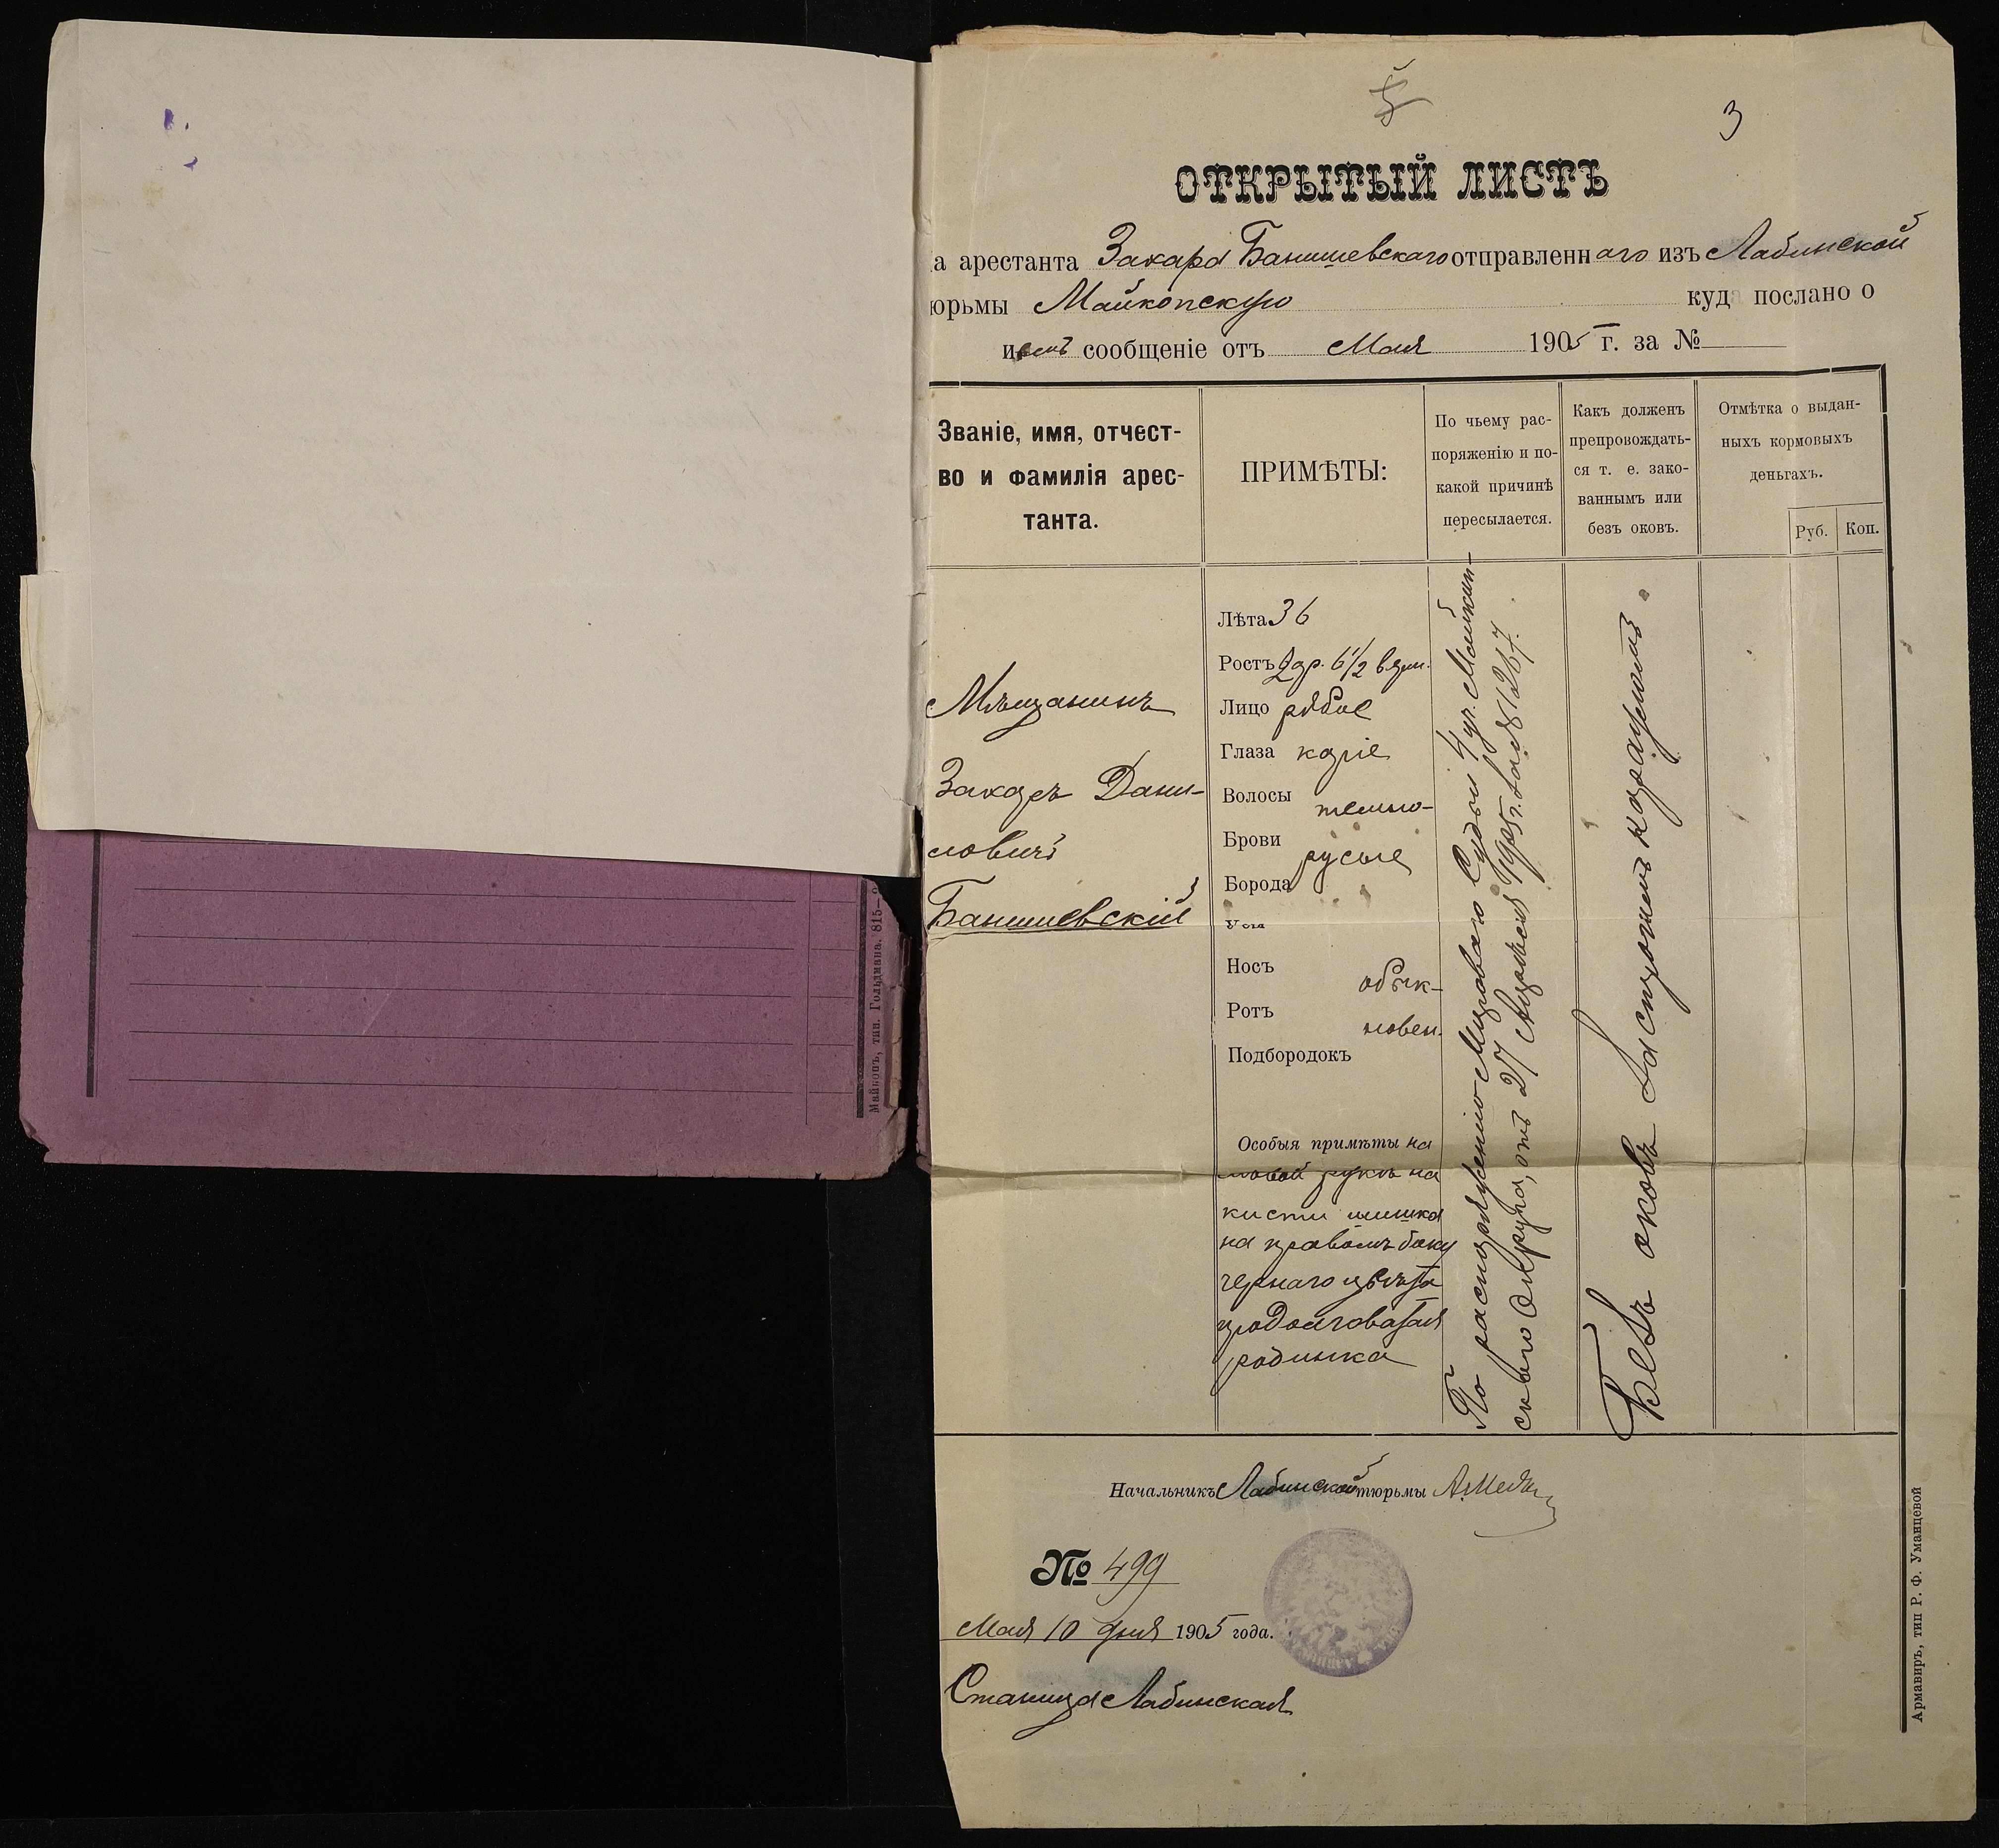 3
ОТКРЫТЫЙ ЛИСТЪ
а арестанта Захара Банишевскаго отправленнаго изъ Лабинской
юрьмы Майкопскую куда послано о
и емъ сообщеніе отъ Мая 1905 г. за №
Званіе, имя, отчест-
во и фамилія арес-
танта.
ПРИМѢТЫ:
По чьему рас-
поряженію и по-
какой причинѣ
пересылается.
Какъ долженъ
препровождать-
ся т. е. зако-
ваннымъ или
безъ оковъ.
Отмѣтка о выдан-
ныхъ кормовыхъ
деньгахъ.
Руб. Коп.
Мѣщанинъ
Захаръ Дани-
ловичъ
Банишевскій
Лѣта 36
Ростъ 2 ар. 6 1/2 верш.
Лицо рябое
Глаза каріе
Волосы темно-
Брови
русые
Борода
Усы
Носъ
обык-
Ротъ
новен.
Подбородокъ
Особыя примѣты на
лѣвой рукѣ на
кисти шишка
на правомъ боку
чернаго цвѣта
продолговатая
родинка
По распоряженію Мироваго Судьи 4 уч. Майкоп-
скаго Округа, отъ 27 Апрѣля 1905 г. за № 1267.
Безъ оковъ за строгимъ карауломъ.
Начальникъ Лабинской тюрьмы
№ 499
Мая 10 дня 1905 года.
Станица Лабинская
Армавиръ, тип Р. Ф. Уманцевой
Майкопъ, тип. Гольдмана. 815—